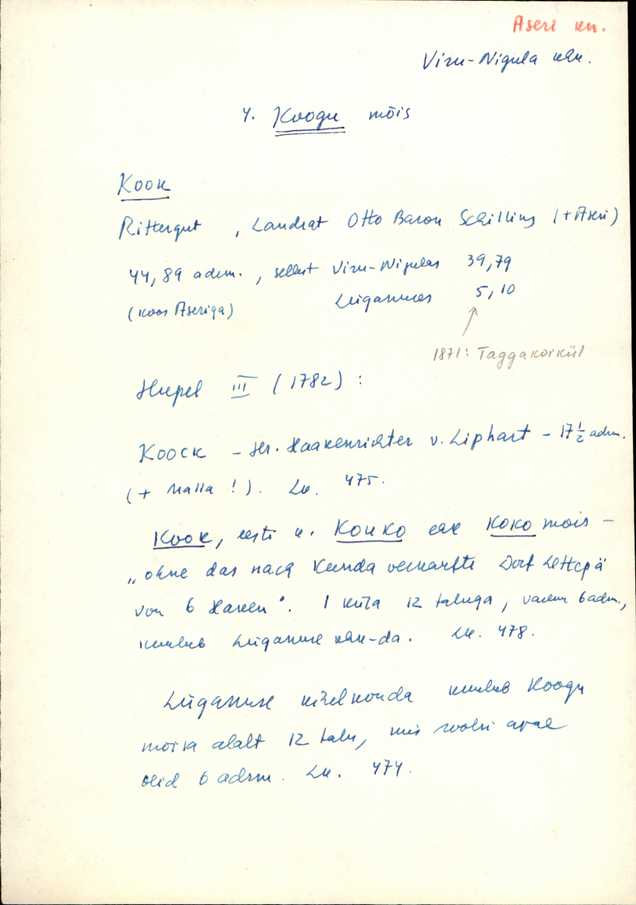 Aseri kn.
Viru-Nigula khk.
4. Koogu mõis
Kook
Rittergut, Landrat Otto Baron Schilling (+ Aseri)
44,89 adrm., sellest Viru-Nigulas 39,79
(koos Aseriga) Lüganuses 5,10
1871: Taggakorkül
Hupel III (1782):
Koock - Hr. Haakenrichter v. Liphart - 17 1/2 adrm.
(+ Malla!). Lk. 475.
Kook, eesti k. Kouko ehk Koko mois -
„ohne das nach Kunda verkaufte Dorf Lettepä
von 6 Haken". 1 küla 12 taluga, varem 6 adrm,
kuulub Lüganuse khk-da. Lk. 478.
Lüganuse kihelkonda kuulub Koogu
moisa alalt 12 talu, mis rootsi ajal
olid 6 adrm. Lk. 474.